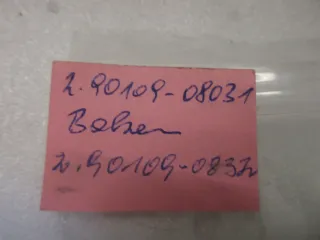 2.90109-08031
Bolzen
2.90109-0832